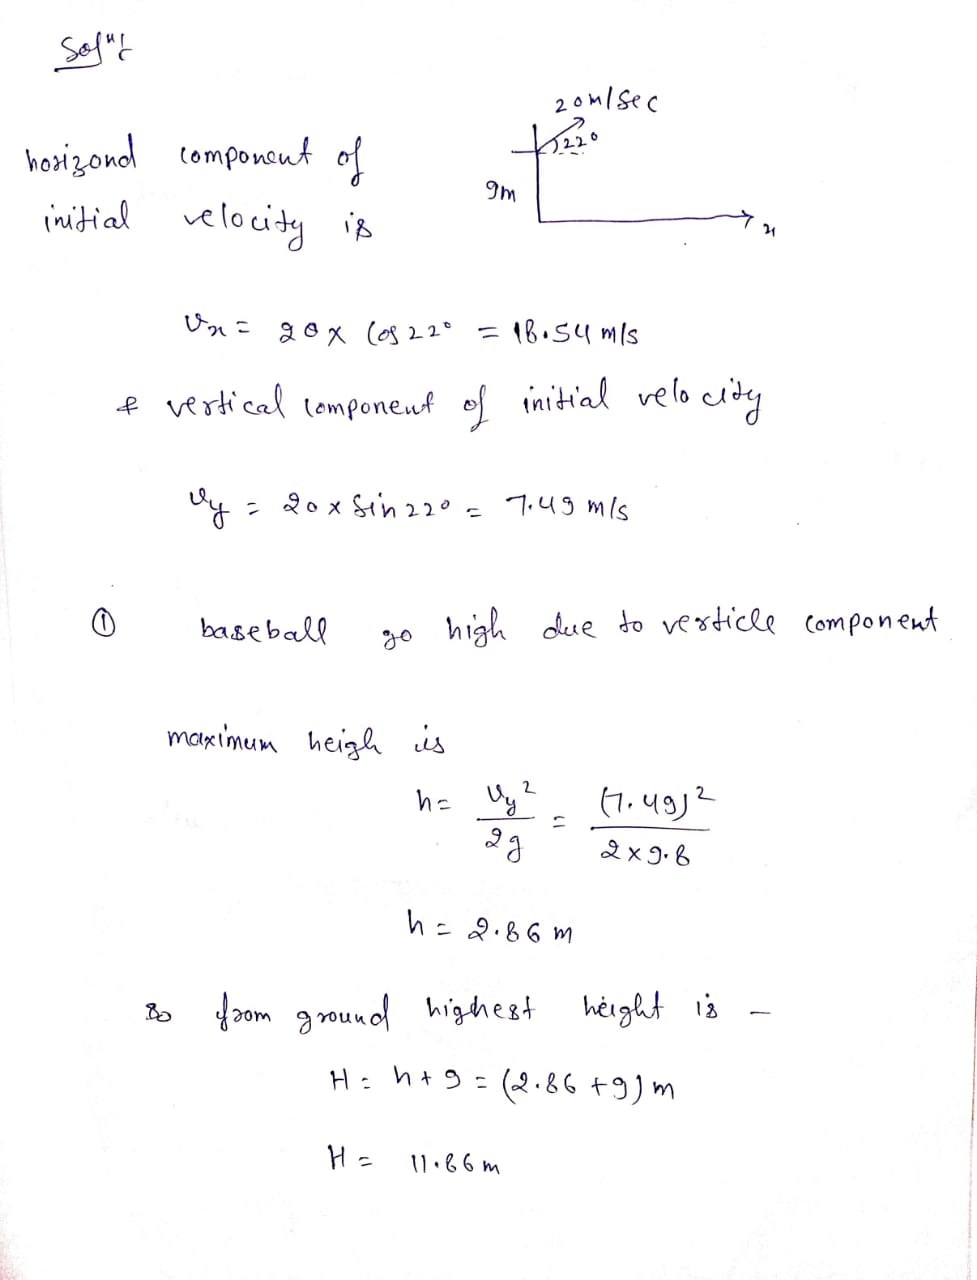 Solⁿ:
20m/sec
22°
9m
x
horizond component of
initial velocity is
Vx = 20 x Cos 22° = 18.54 m/s
& vertical component of initial velocity
Uy = 20 x Sin 22° = 7.49 m/s
① baseball go high due to verticle component
maximum heigh is
h = Uy² / 2g = (7.49)² / 2 x 9.8
h = 2.86 m
So from ground highest height is –
H = h + 9 = (2.86 + 9) m
H = 11.86 m